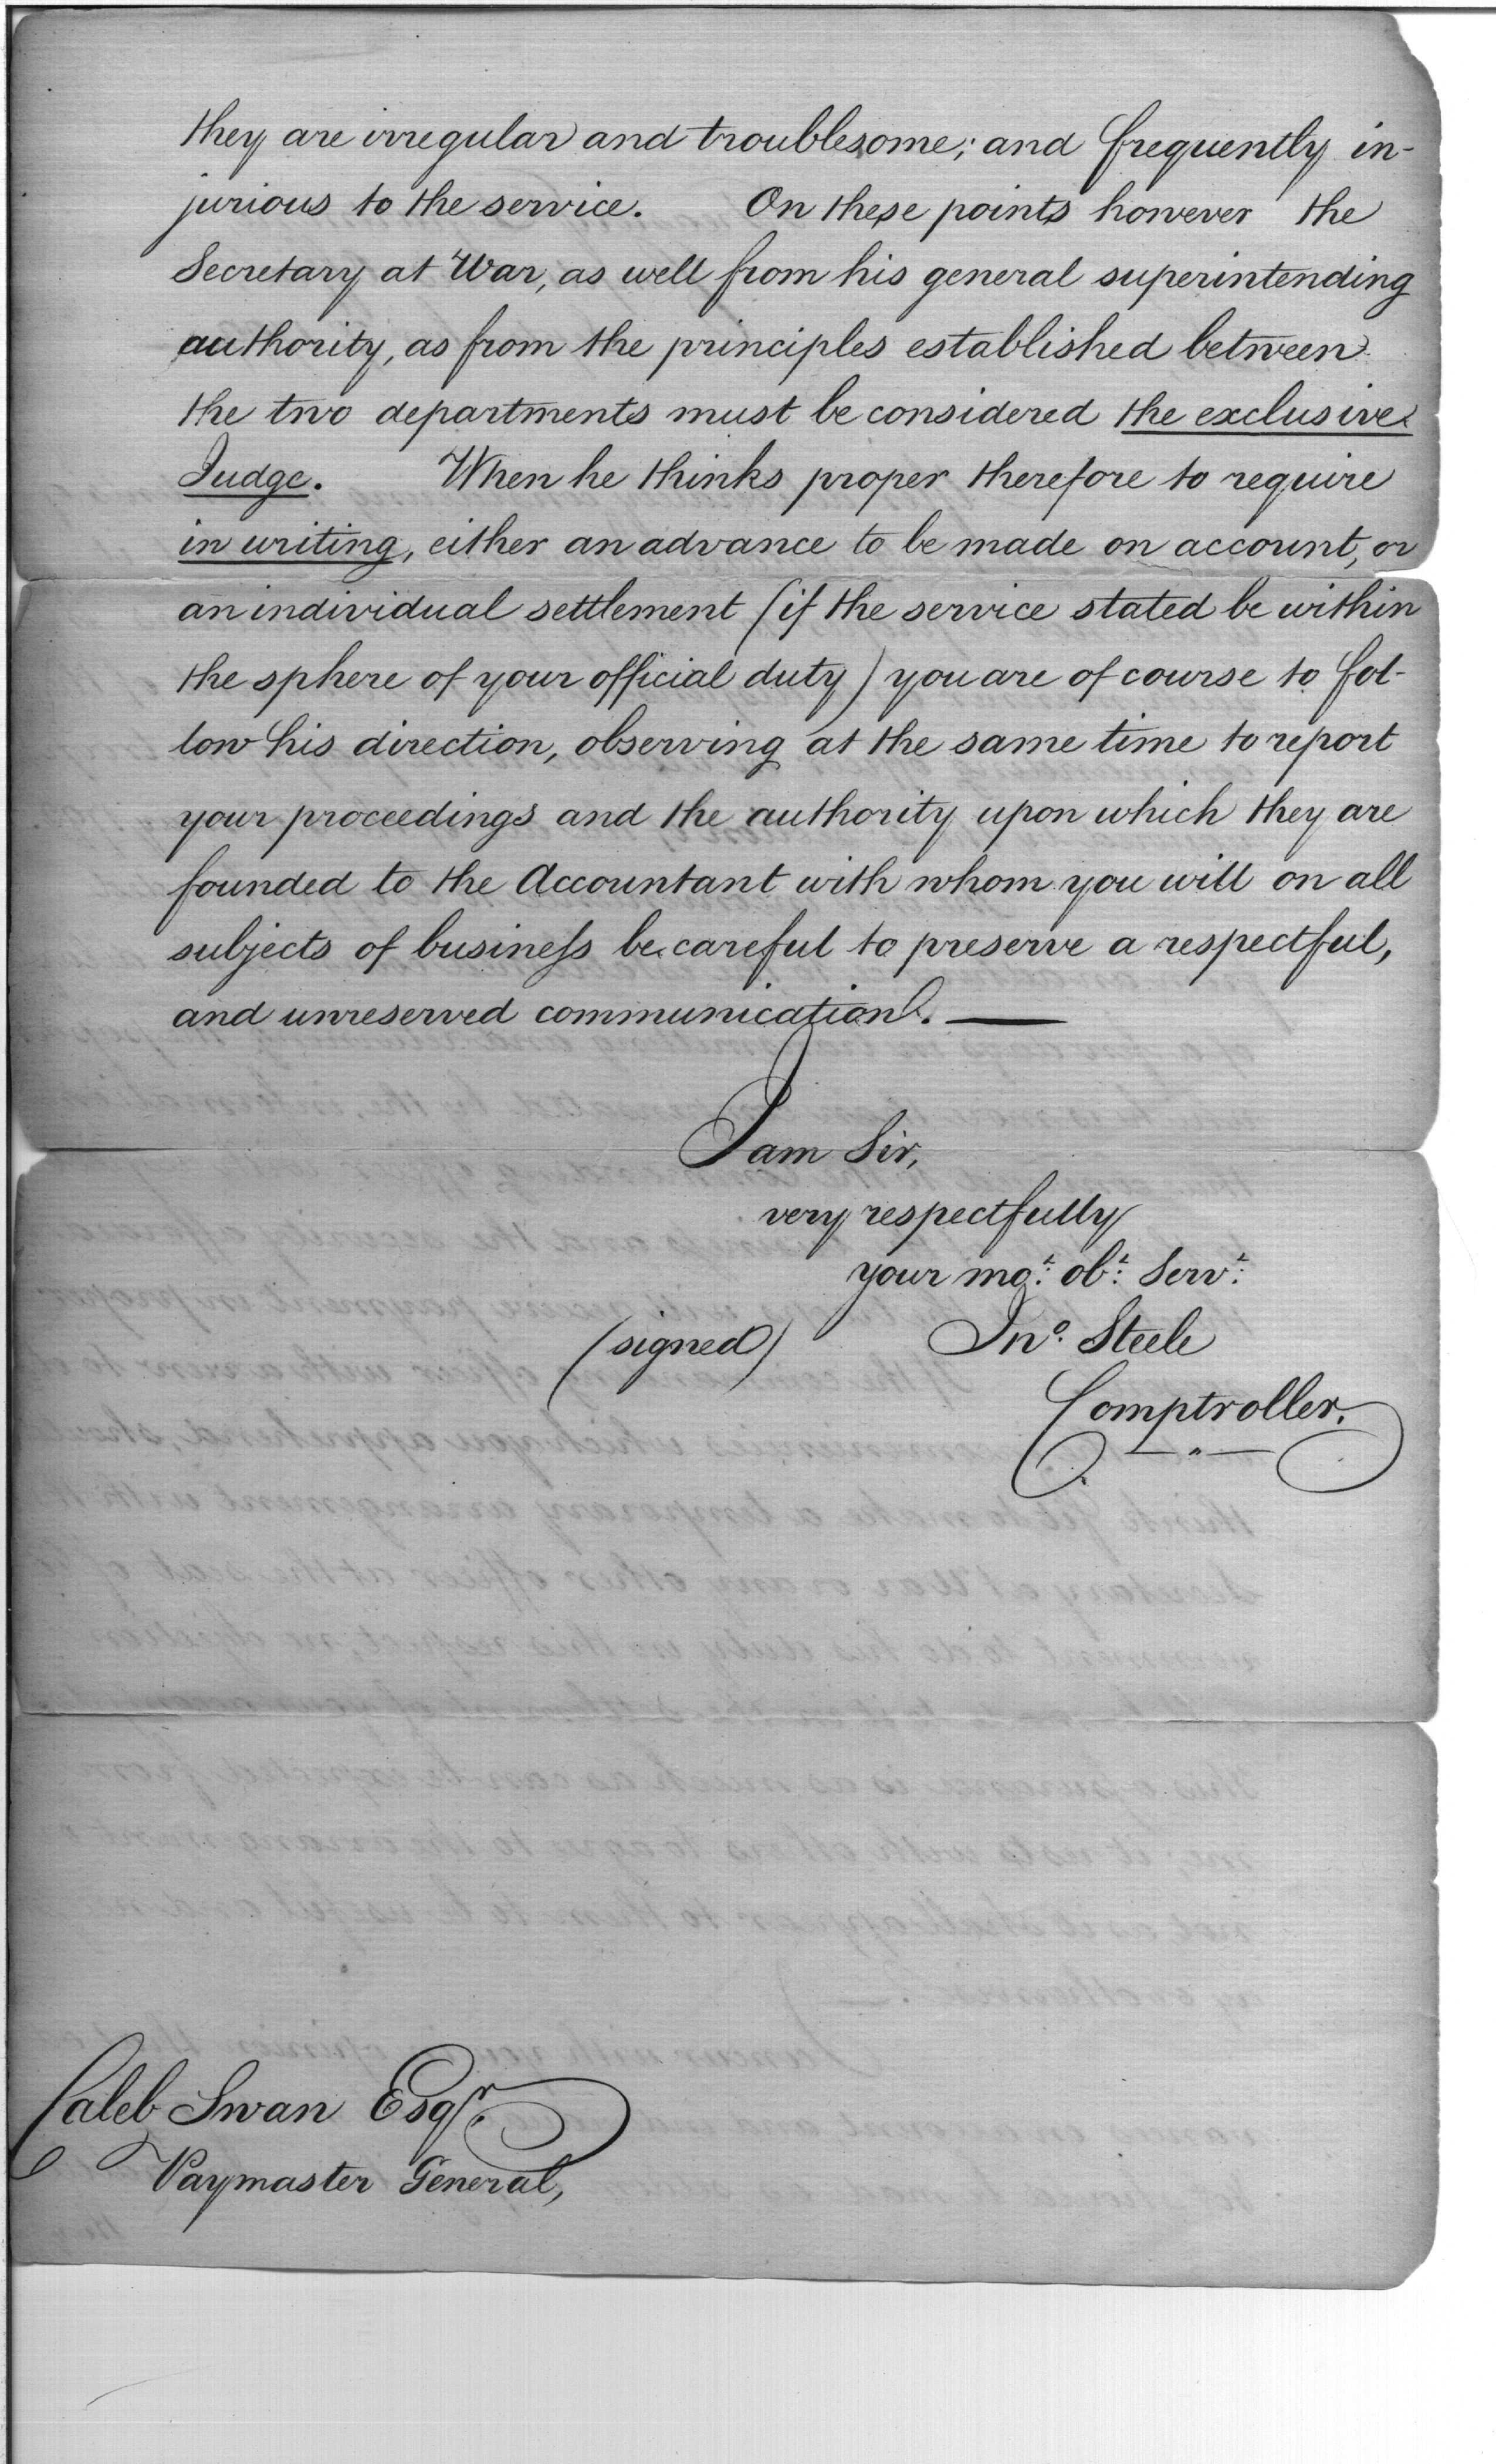 they are irregular and troublesome; and frequently in-
jurious to the service. On these points however the
Secretary at War, as well from his general superintending
authority, as from the principles established between
the two departments must be considered the exclusive
Judge. When he thinks proper therefore to require
in writing, either an advance to be made on account, or
an individual settlement (if the service stated be within
the sphere of your official duty) you are of course to fol-
low his direction, observing at the same time to report
your proceedings and the authority upon which they are
founded to the Accountant with whom you will on all
subjects of busineſs be careful to preserve a respectful,
and unreserved communication. —
I am Sir,
very respectfully
your mo.t ob.t Serv.t
(signed) Jno. Steele
Comptroller.
Caleb Swan Esqr.
Paymaster General,